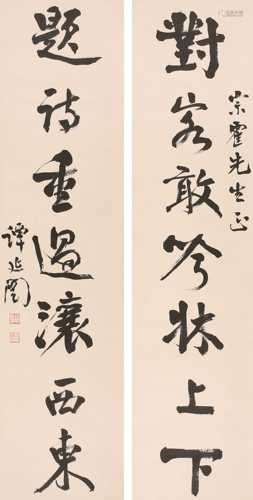 宗霍先生正
對客敢吟牀上下
題詩重過瀼西東
譚延闓